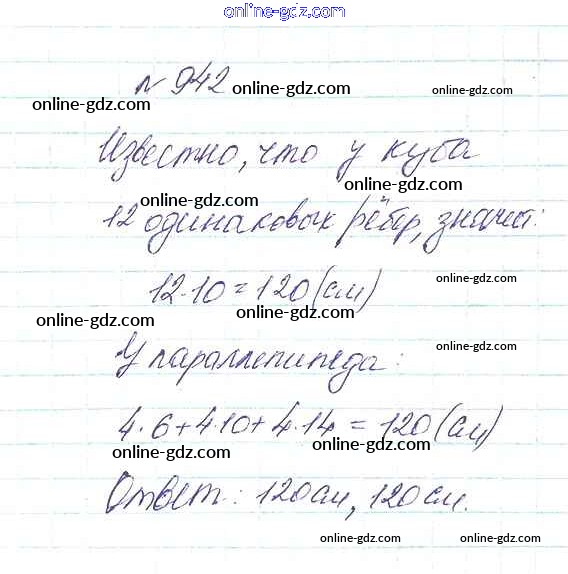 online-gdz.com
№ 942
online-gdz.com online-gdz.com
Известно, что у куба
online-gdz.com
online-gdz.com
12 одинаковых рёбер, значит:
online-gdz.com
12·10=120(см)
online-gdz.com
online-gdz.com
online-gdz.com
У параллепипеда:
online-gdz.com
4·6+4·10+4·14=120(см)
online-gdz.com
online-gdz.com
Ответ: 120см, 120см.
online-gdz.com
online-gdz.com
online-gdz.com